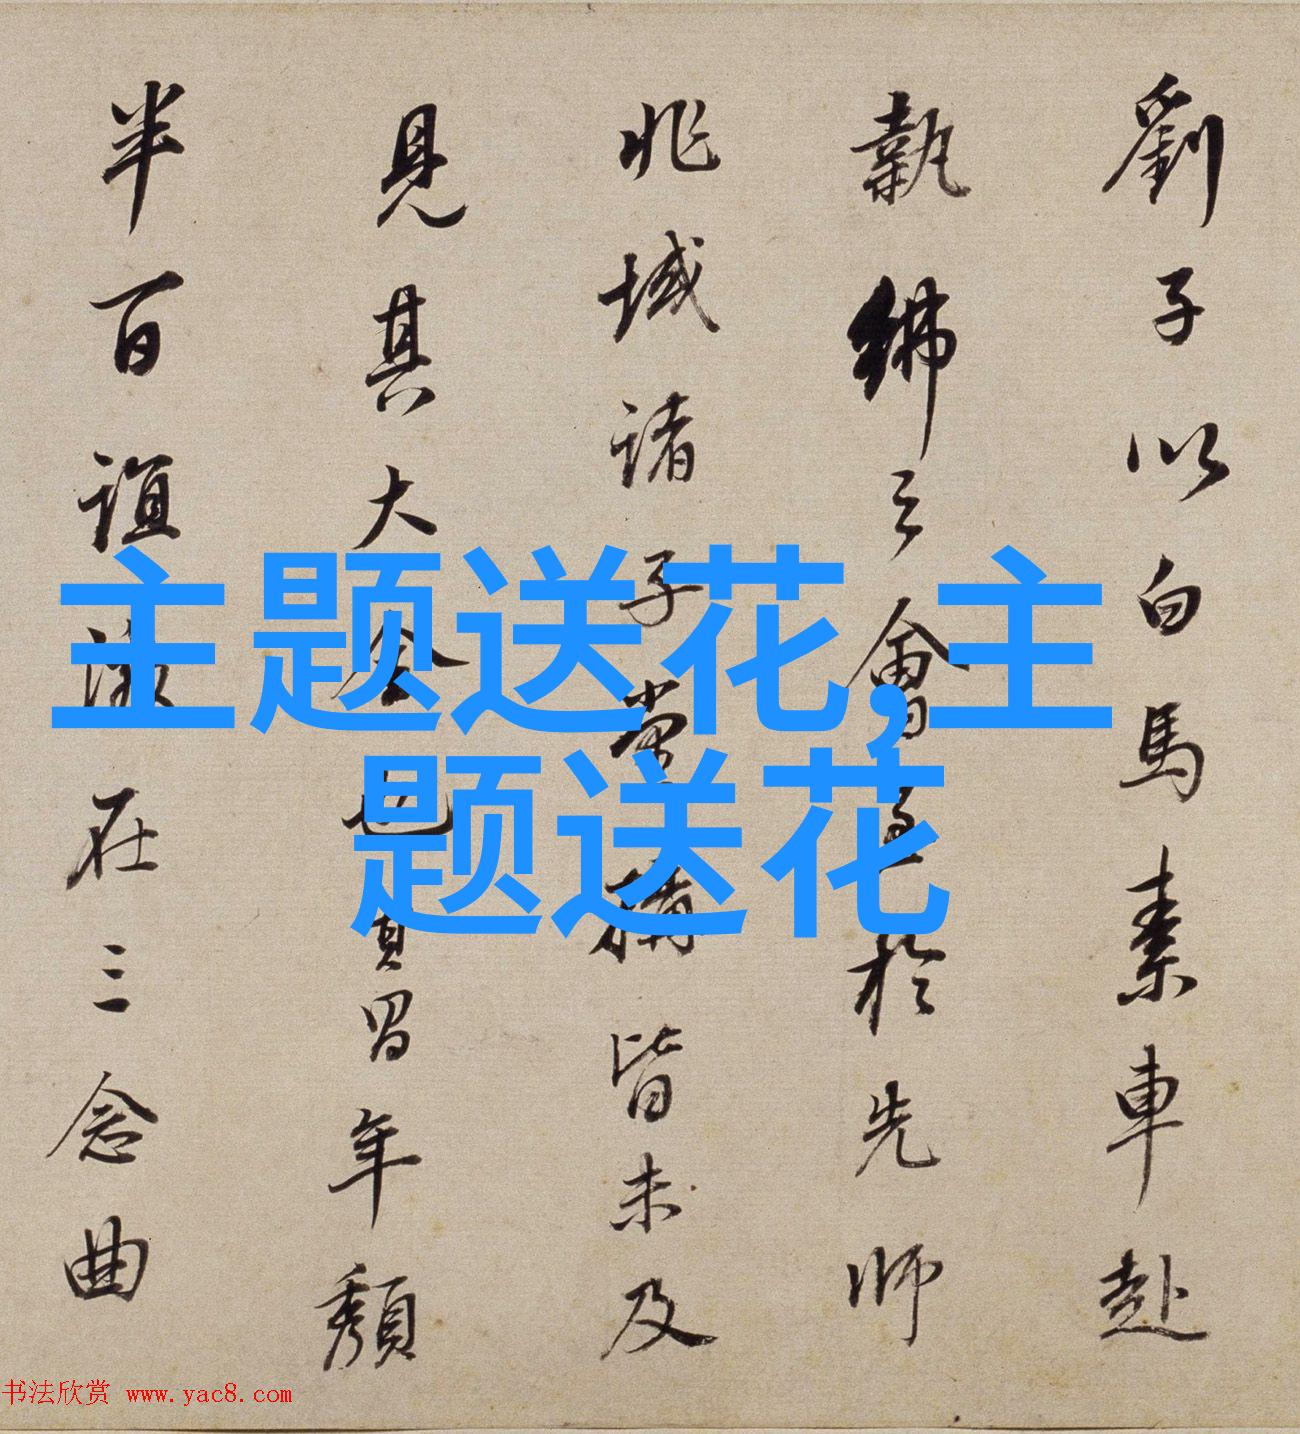 劉子以白馬素車赴
執紼之會至於先師
兆域諸子常稱皆未及
見其大全也眞習年頹
半百誼激在三念曲
主题送花,主
题送花
书法欣赏 www.yac8.com